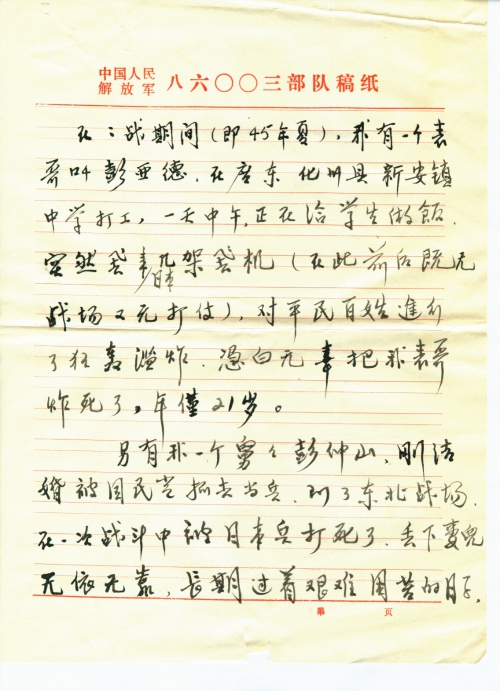 中国人民
解放军 八六〇〇三部队稿纸
在二战期间(即45年夏),我有一个表
哥叫彭亚德,在广东化州县新安镇
中学打工,一天中午,正在给学生做飯,
突然飛来九架飛机(在此前后既无
日本
战场又无打仗),对平民百姓進行
了狂轰滥炸,憑白无辜把我表哥
炸死了,年僅21岁。
另有我一个舅々彭仲山,刚结
婚被国民党抓去当兵,到了东北战场,
在一次战斗中被日本兵打死了,丢下妻児
无依无靠,長期过着艰难困苦的日子,
第 页